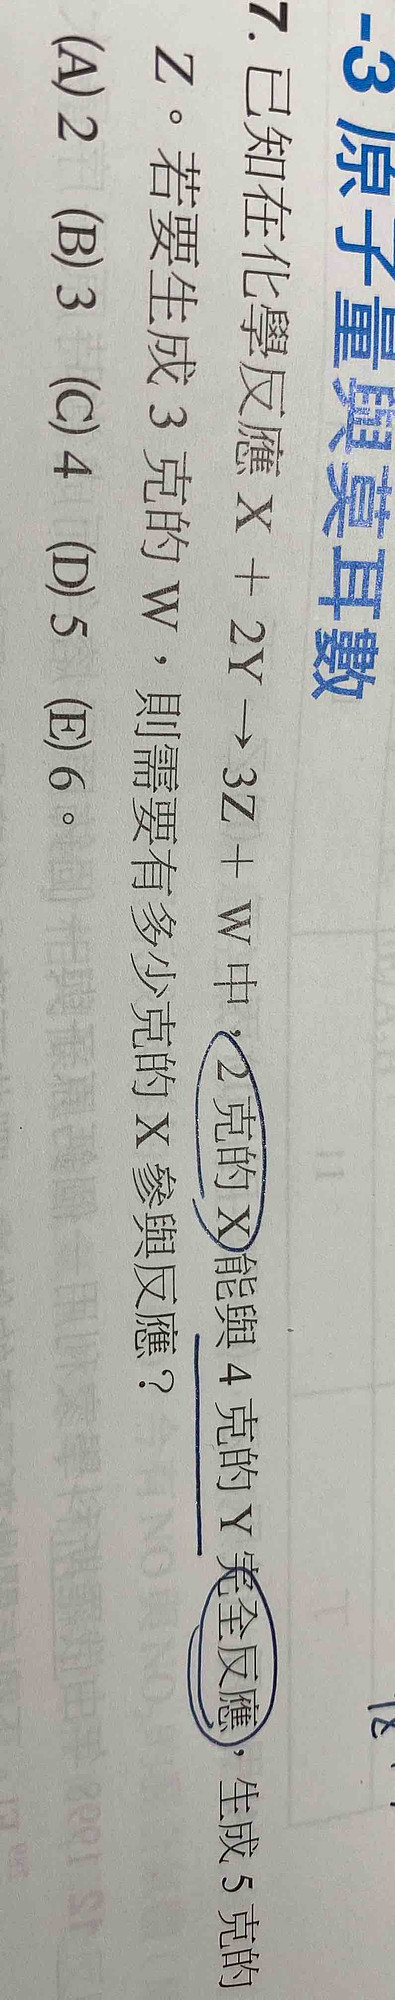 -3 原子量與莫耳數
7. 已知在化學反應 X + 2Y → 3Z + W 中，2 克的 X 能與 4 克的 Y 完全反應，生成 5 克的
Z。若要生成 3 克的 W，則需要有多少克的 X 參與反應？
(A) 2 (B) 3 (C) 4 (D) 5 (E) 6。